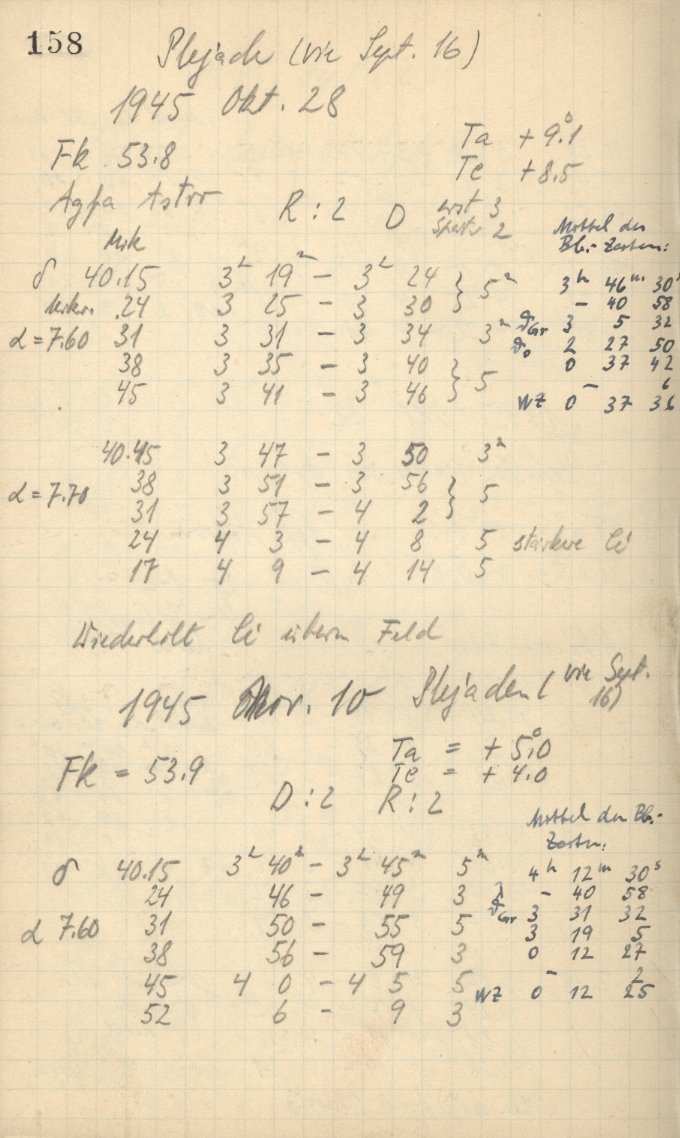 158
Plejade (wie Sept. 16)
1945 Okt. 28
Fk 53.8
Ta +9.°1
Te +8.5
Agfa Astro R : 2 D erst 3
später 2
Mittel der
Bb.-Zeiten:
Mik
δ 40.15 3ʰ 19ᵐ – 3ʰ 24 } 5ᵐ
Mikr. 24 3 25 – 3 30 }
α = 7.60 31 3 31 – 3 34 3ᵐ
38 3 35 – 3 40 } 5
45 3 41 – 3 46 }
3ʰ 46ᵐ 30ˢ
– 40 58
ϑGr 3 5 32
ϑ₀ 2 27 50
0 37 42
– 6
WZ 0 37 36
40.45 3 47 – 3 50 3ᵐ
α = 7.70 38 3 51 – 3 56 } 5
31 3 57 – 4 2 }
24 4 3 – 4 8 5 stärkere Ci
17 4 9 – 4 14 5
Wiederholt Ci überm Feld
1945 Nov. 10 Plejaden (wie Sept.
16)
Fk = 53.9
Ta = + 5.°0
Te = + 4.0
D : 2 R : 2
Mittel der Bb.-
Zeiten:
δ 40.15 3ʰ 40ᵐ – 3ʰ 45ᵐ 5ᵐ
24 46 – 49 3
α 7.60 31 50 – 55 5
38 56 – 59 3
45 4 0 – 4 5 5
52 6 – 9 3
4ʰ 12ᵐ 30ˢ
λ – 40 58
ϑGr 3 31 32
3 19 5
0 12 27
– 2
WZ 0 12 25